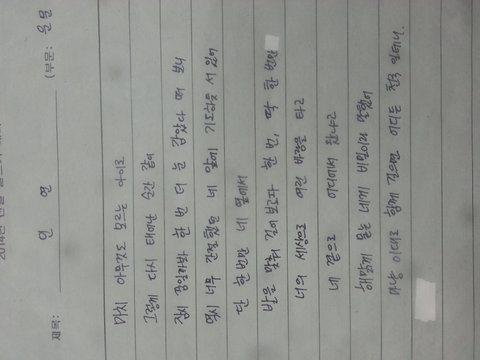 2014년 한글
제목: 인연 (부문: 운문
마치 아무것도 모르는 아이로
그렇게 다시 태어난 순간 같아
잠시 꿈일까봐 한 번 더 눈 감았다 떠 보니
역시 너무 간절했던 네 앞에 기도하듯 서 있어
단 한번만 네 옆에서
발을 맞춰 걸어 보고파 한 번, 딱 한 번만
너의 세상으로 여린 바람을 타고
네 곁으로 어디에서 왔냐고
해맑게 묻는 네게 비밀이라 말했어
마냥 이대로 함께 걸으면 어디든 천국 일테니.